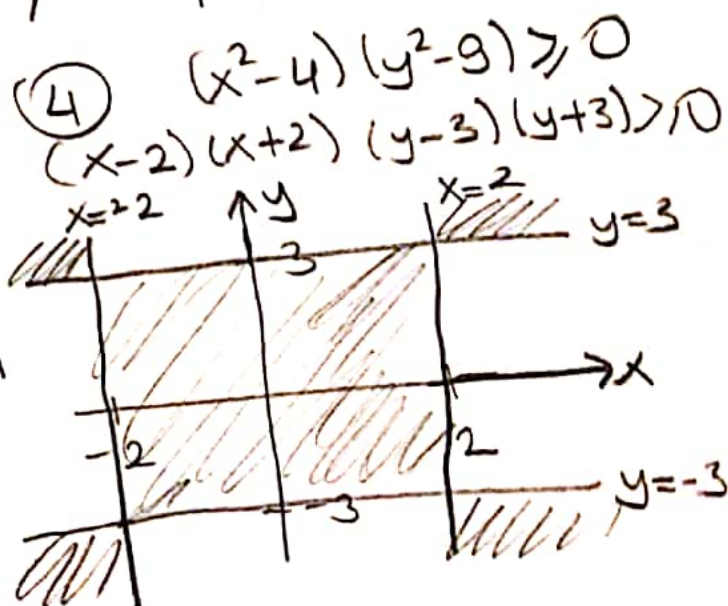 ④ (x²-4)(y²-9)⩾0
(x-2)(x+2)(y-3)(y+3)>0
x=-2 y x=2 y=3
3
x
-2 2
-3 y=-3